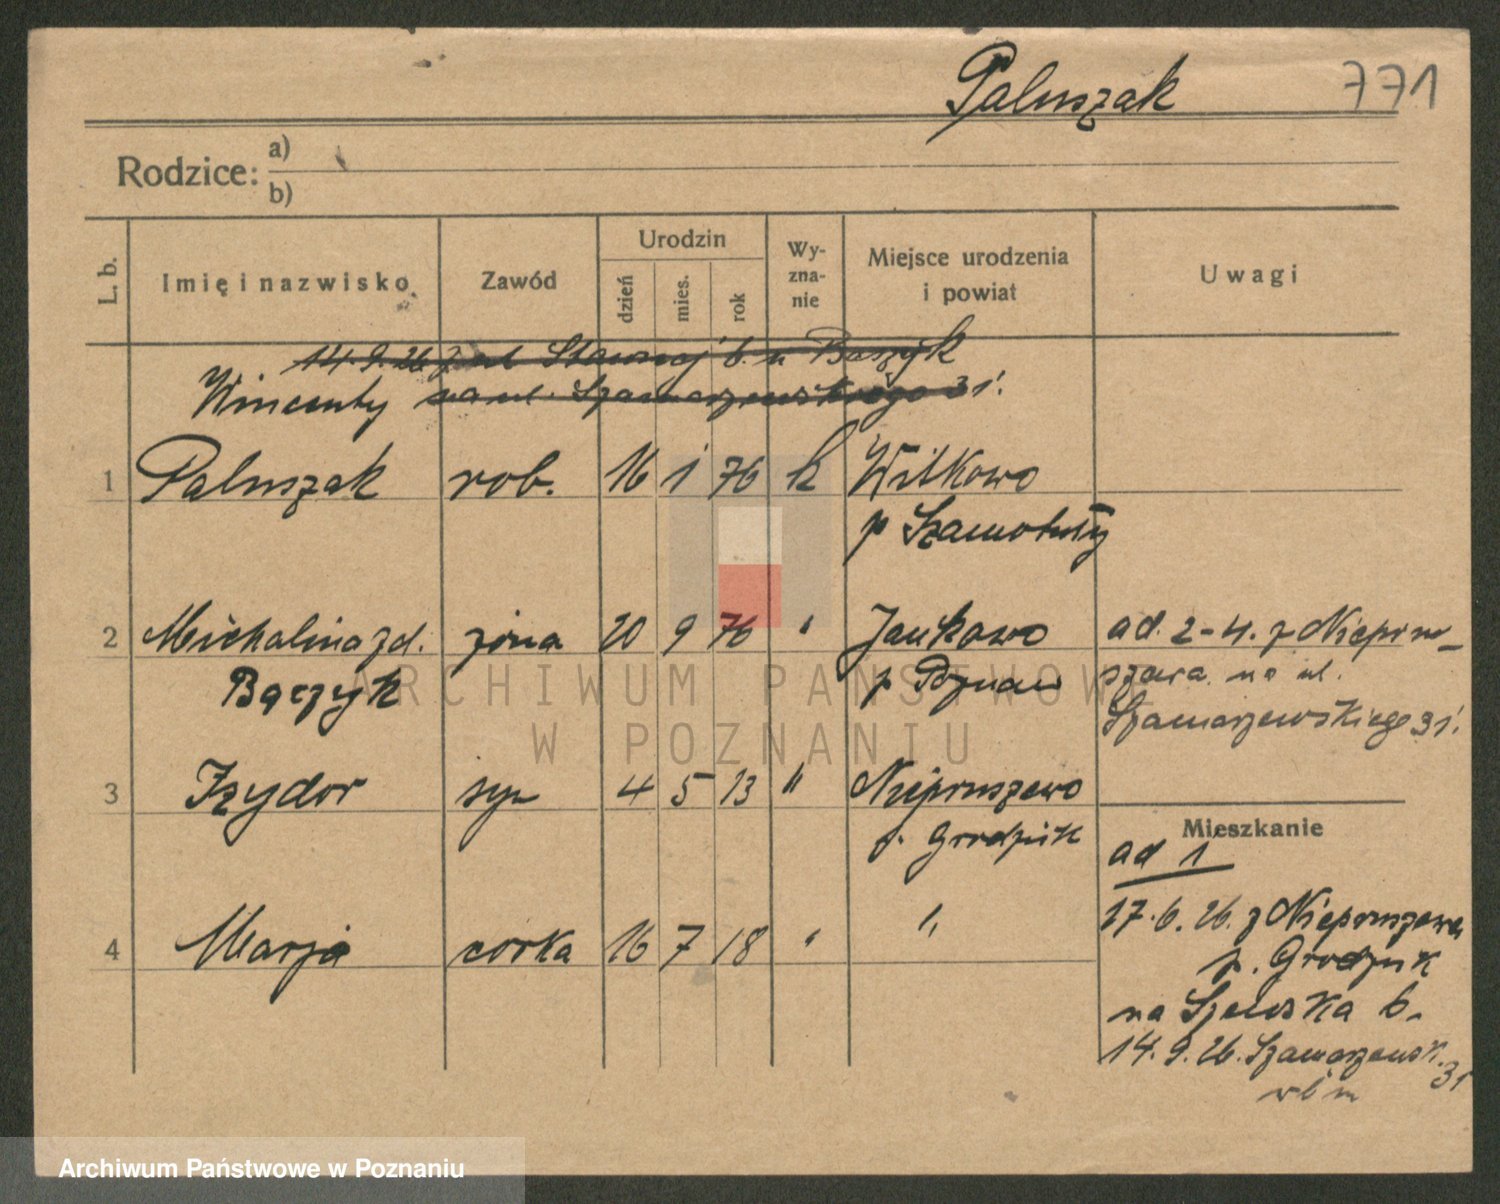 Paluszak 771
Rodzice: a)
b)
L. b. Imię i nazwisko Zawód Urodzin dzień mies. rok Wy-zna-nie Miejsce urodzenia i powiat Uwagi
14.9.26 z ul. b. u Bączyk
Wincenty na ul. Szamarzewskiego 31.
1 Paluszak rob. 16 1 76 k Wilkowo
p Szamotuły
2 Michalina zd. żona 20 9 76 " Jankowo ad. 2-4. z Niepru-
Bączyk p Poznań szewa na ul.
Szamarzewskiego 31.
3 Izydor syn 4 5 13 " Niepruszewo
p. Grodzisk
Mieszkanie
ad 1
4 Marja corka 16 7 18 " "
17.6.26. z Niepruszewa
p. Grodzisk
na Szewska 6.
14.9.26. Szamarzewsk. 31
ARCHIWUM PAŃSTWOWE
W POZNANIU
Archiwum Państwowe w Poznaniu